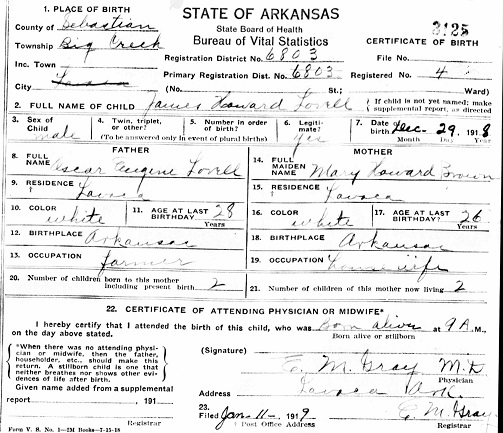 1. PLACE OF BIRTH
County of Sebastian
Township Big Creek
Inc. Town
City Lavaca
STATE OF ARKANSAS
State Board of Health
Bureau of Vital Statistics
Registration District No. 6803
Primary Registration Dist. No. 6803
(No. St.; Ward)
3125
CERTIFICATE OF BIRTH
File No.
Registered No. 4
2. FULL NAME OF CHILD James Howard Lovell { If child is not yet named; make supplemental report, as directed
3. Sex of Child male
4. Twin, triplet, or other?
5. Number in order of birth
(To be answered only in event of plural births)
6. Legitimate? Yes
7. Date of birth Dec- 29, 1918
Month Day Year
FATHER
8. FULL NAME Oscar Eugene Lovell
9. RESIDENCE Lavaca
10. COLOR white
11. AGE AT LAST BIRTHDAY? 28 Years
12. BIRTHPLACE Arkansas
13. OCCUPATION farmer
MOTHER
14. FULL MAIDEN NAME Mary Howard Brown
15. RESIDENCE Lavaca
16. COLOR white
17. AGE AT LAST BIRTHDAY 26 Years
18. BIRTHPLACE Arkansas
19. OCCUPATION housewife
20. Number of children born to this mother including present birth 2
21. Number of children of this mother now living 2
22. CERTIFICATE OF ATTENDING PHYSICIAN OR MIDWIFE*
I hereby certify that I attended the birth of this child, who was Born alive at 9 A M.,
on the day above stated. Born alive or stillborn
*When there was no attending physician or midwife, then the father, householder, etc., should make this return. A stillborn child is one that neither breathes nor shows other evidences of life after birth.
Given name added from a supplemental
report 191
Registrar
(Signature) E. M. Gray M.D.
Physician
Address Lavaca Ark.
23.
Filed Jan-11- 1919 E M Gray
Post Office Address Registrar
Form V. S. No. 1—2M Books—7-15-18